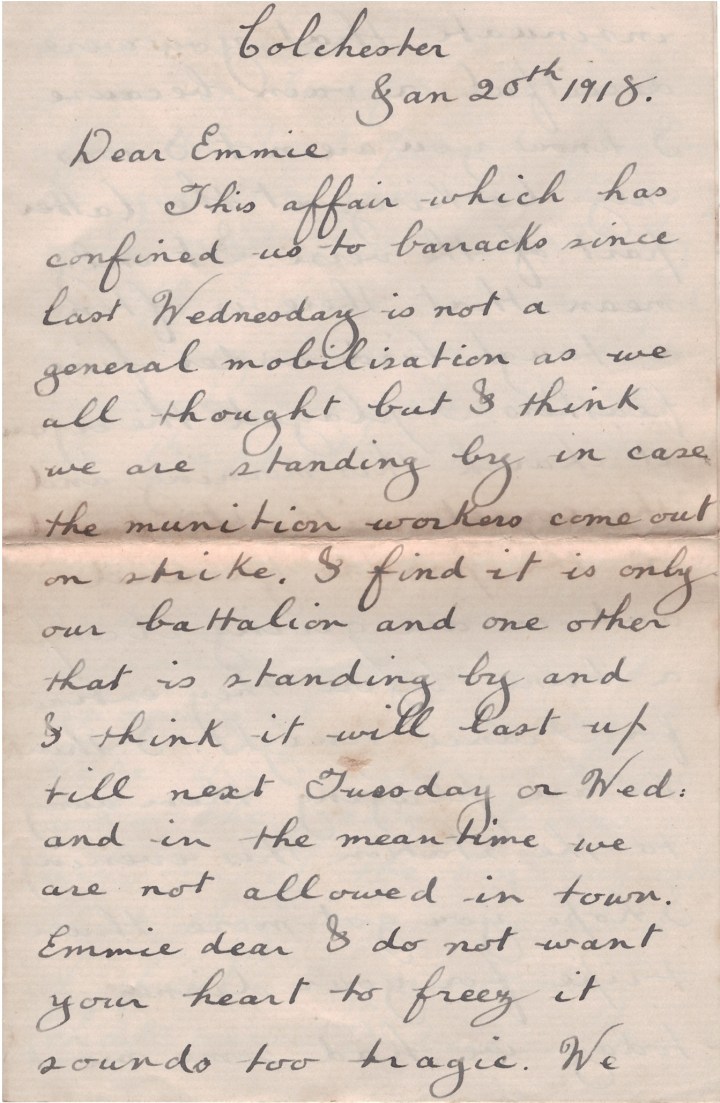 Colchester
Jan 20th 1918.
Dear Emmie
This affair which has
confined us to barracks since
last Wednesday is not a
general mobilisation as we
all thought but I think
we are standing by in case
the munition workers come out
on strike. I find it is only
our battalion and one other
that is standing by and
I think it will last up
till next Tuesday or Wed:
and in the meantime we
are not allowed in town.
Emmie dear I do not want
your heart to freez it
sounds too tragic. We